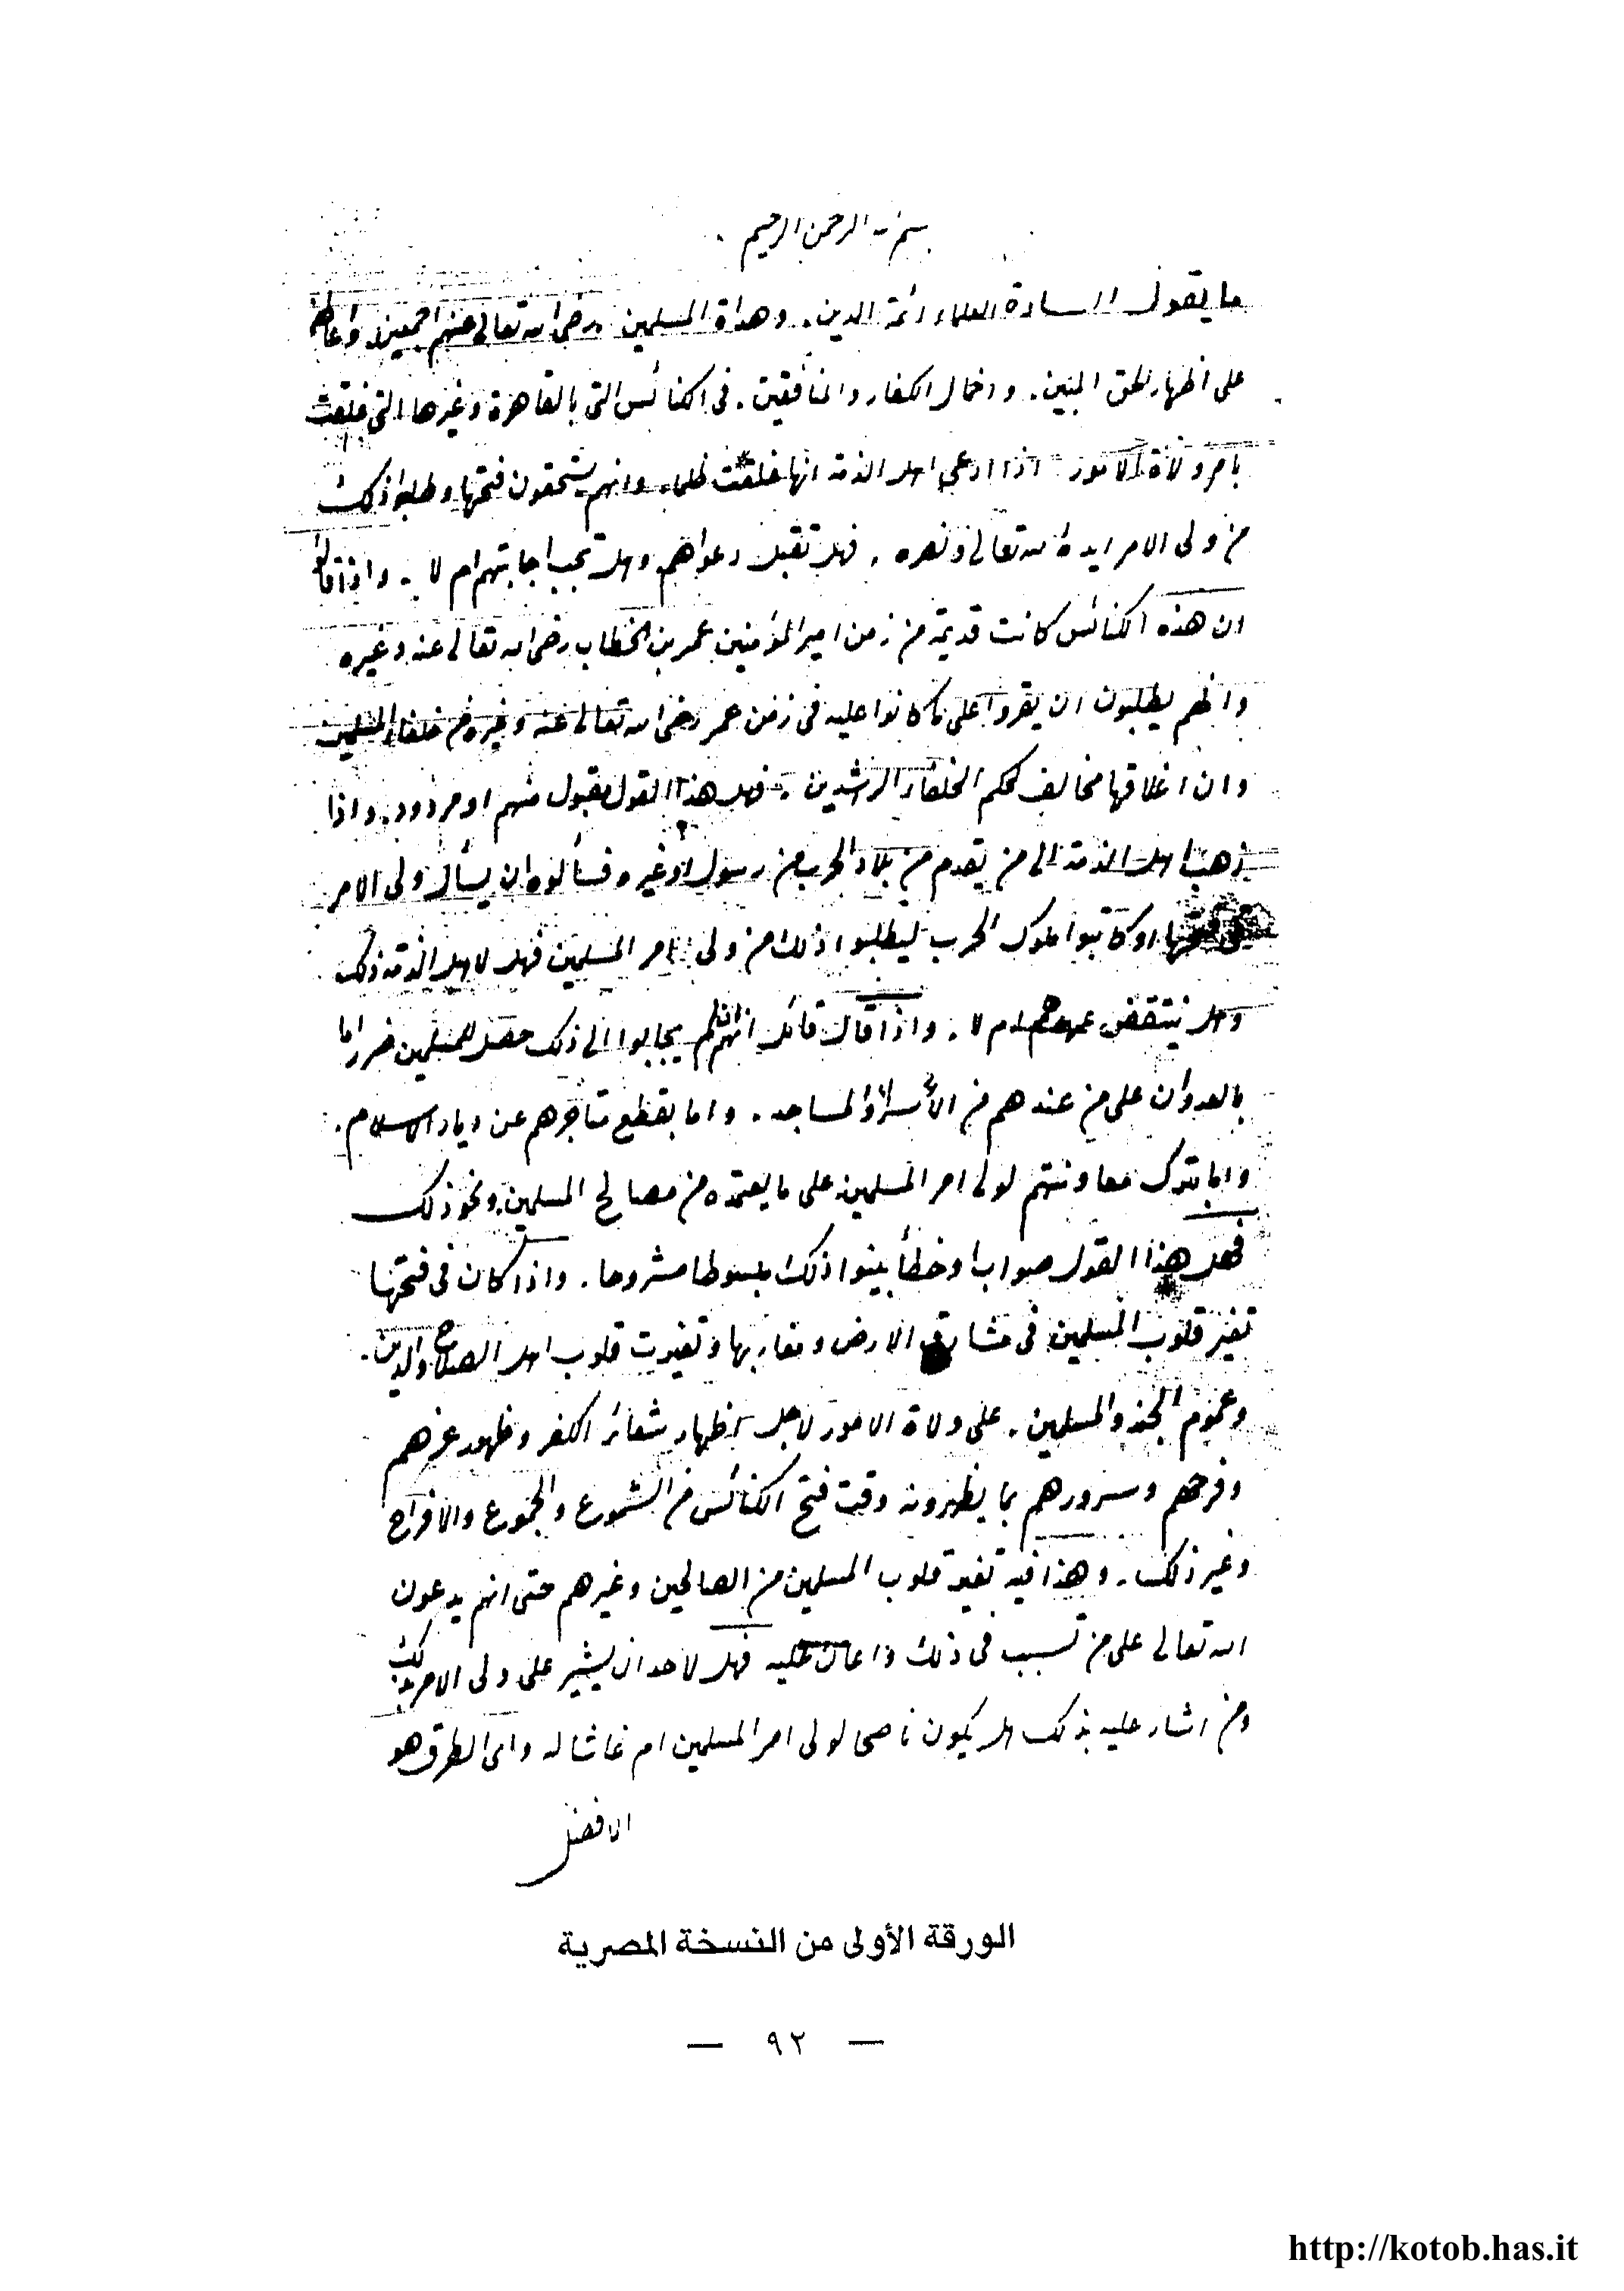 بسم الله الرحمن الرحيم
ما يقول السادة العلماء ائمة الدين. وهداة المسلمين. رضى الله تعالى عنهم اجمعين. واعانهم
على اظهار الحق المبين. واخمال الكفار والمنافقين. فى الكنائس التى بالقاهرة وغيرها التى غلقت
بامر ولاة الامور اذا ادعى اهل الذمة انها غلقت ظلما. وانهم يستحقون فتحها وطلبوا ذلك
من ولى الامر ايده الله تعالى ونصره. فهل تقبل دعواهم وهل تجب اجابتهم ام لا. واذا قالوا
ان هذه الكنائس كانت قديمة من زمن امير المؤمنين عمر بن الخطاب رضى الله تعالى عنه وغيره
وانهم يطلبون ان يقروا على ما كانوا عليه فى زمن عمر رضى الله تعالى عنه وغيره من خلفاء المسلمين
وان اغلاقها مخالف لحكم الخلفاء الراشدين. فهل هذا القول مقبول منهم او مردود. واذا
ذهب اهل الذمة الى من يقدم من بلاد الحرب من رسول او غيره فسألوه ان يسأل ولى الامر
فى فتحها او كاتبوا ملوك الحرب ليطلبوا ذلك من ولى امر المسلمين فهل لاهل الذمة ذلك
وهل ينتقض عهدهم ام لا. واذا قال قائل انهم ان لم يجابوا الى ذلك حصل للمسلمين ضرر اما
بالعدوان على من عندهم من الأسراء والمساجد. واما بقطع متاجرهم عن ديار الاسلام.
واما بترك معاونتهم لولى امر المسلمين على ما يعتمده من مصالح المسلمين ونحو ذلك
فهل هذا القول صواب او خطأ بينوا ذلك مبسوطا مشروحا. واذا كان فى فتحها
تغير قلوب المسلمين فى مشارق الارض ومغاربها وتغيرت قلوب اهل الصلاح والدين.
وعموم الجند والمسلمين. على ولاة الامور لاجل اظهار شعائر الكفر وظهور عزهم
وفرحهم وسرورهم بما يظهرونه وقت فتح الكنائس من الشموع والجموع والافراح
وغير ذلك. وهذا فيه تغير قلوب المسلمين من الصالحين وغيرهم حتى انهم يدعون
الله تعالى على من تسبب فى ذلك واعان عليه فهل لاحد ان يشير على ولى الامر بذلك
ومن اشار عليه بذلك هل يكون ناصحا لولى امر المسلمين ام غاشا له واى الطرق هو
الافضل
الورقة الأولى من النسخة المصرية
— ٩٢ —
http://kotob.has.it